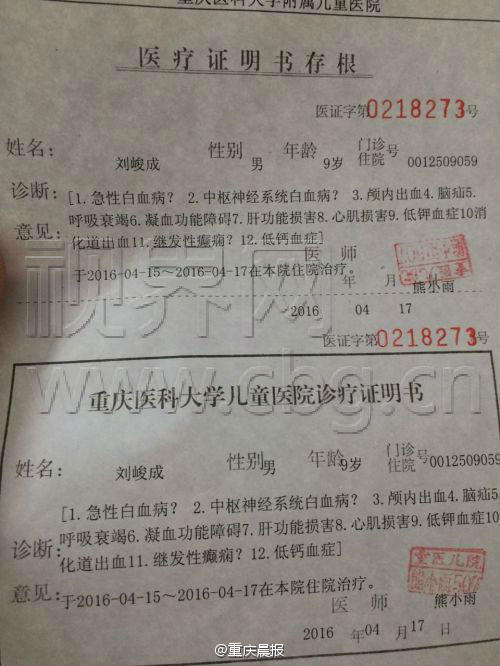 重庆医科大学附属儿童医院
医疗证明书存根
医证字第0218273号
姓名： 刘峻成 性别 男 年龄 9岁 门诊住院号 0012509059
诊断： [1.急性白血病？ 2.中枢神经系统白血病？ 3.颅内出血4.脑疝5.
呼吸衰竭6.凝血功能障碍7.肝功能损害8.心肌损害9.低钾血症10消
意见： 化道出血11.继发性癫痫？12.低钙血症]
医 师
于2016-04-15~2016-04-17在本院住院治疗。
年 月 熊小雨
2016 04 17
医证字第0218273号
视界网
www.cbg.cn
重庆医科大学儿童医院诊疗证明书
姓名： 刘峻成 性别 男 年龄 9岁 门诊住院号 0012509059
[1.急性白血病？ 2.中枢神经系统白血病？ 3.颅内出血4.脑疝5.
呼吸衰竭6.凝血功能障碍7.肝功能损害8.心肌损害9.低钾血症10
诊断： 化道出血11.继发性癫痫？12.低钙血症]
意见： 于2016-04-15~2016-04-17在本院住院治疗。
医 师 熊小雨
2016 年 04 月 17 日
@重庆晨报